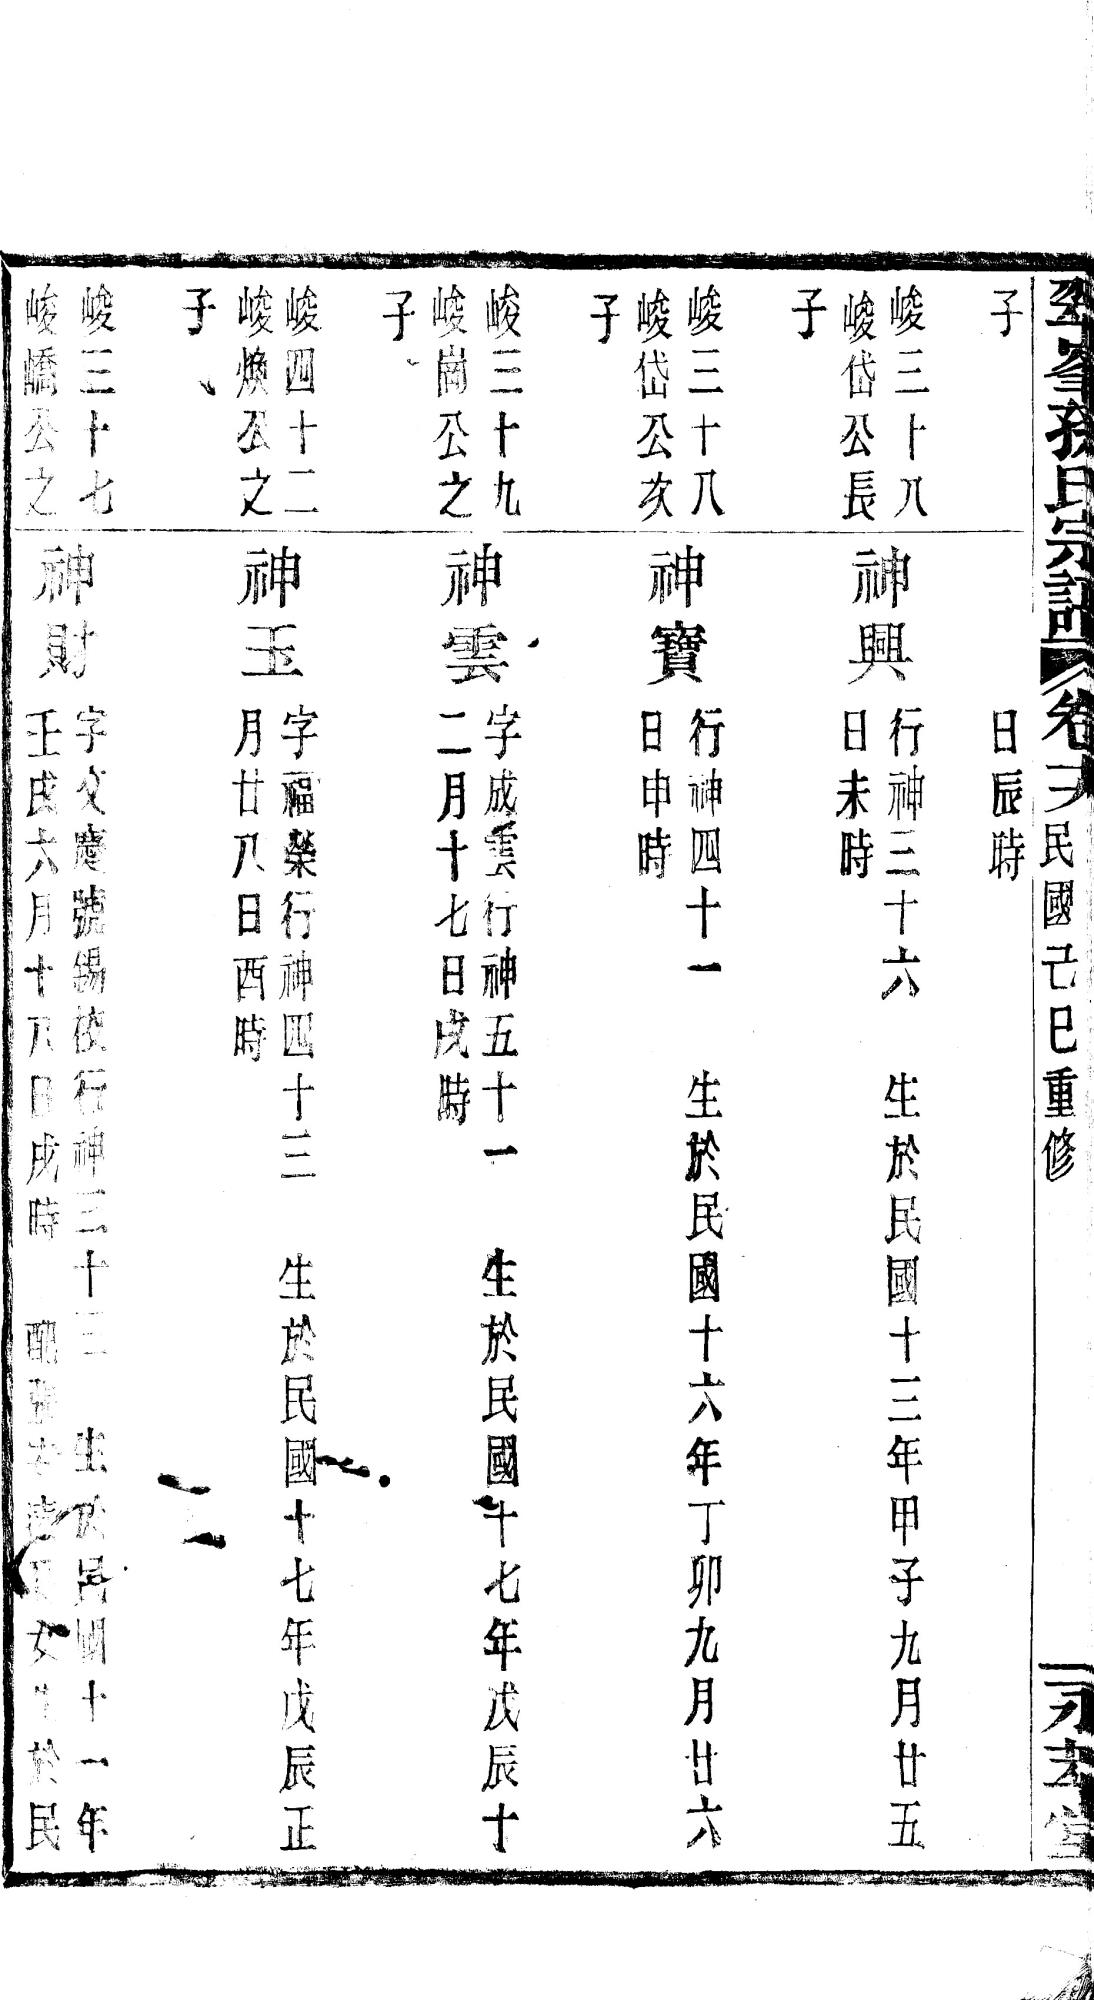 孫氏宗譜
民國己巳重修
子
日辰時
峻三十八
峻岱公長
子
神興
行神三十六　生於民國十三年甲子九月廿五
日未時
峻三十八
峻岱公次
子
神寶
行神四十一　生於民國十六年丁卯九月廿六
日申時
峻三十九
峻崗公之
子
神雲
字成雲行神五十一　生於民國十七年戊辰十
二月十七日戌時
峻四十二
峻煥公之
子
神玉
字福榮行神四十三　生於民國十七年戊辰正
月廿八日酉時
峻三十七
峻嶠公之
神財
字文慶號錫　行神三十三　生於民國十一年
壬戌六月十八日戌時　配張　女　於民